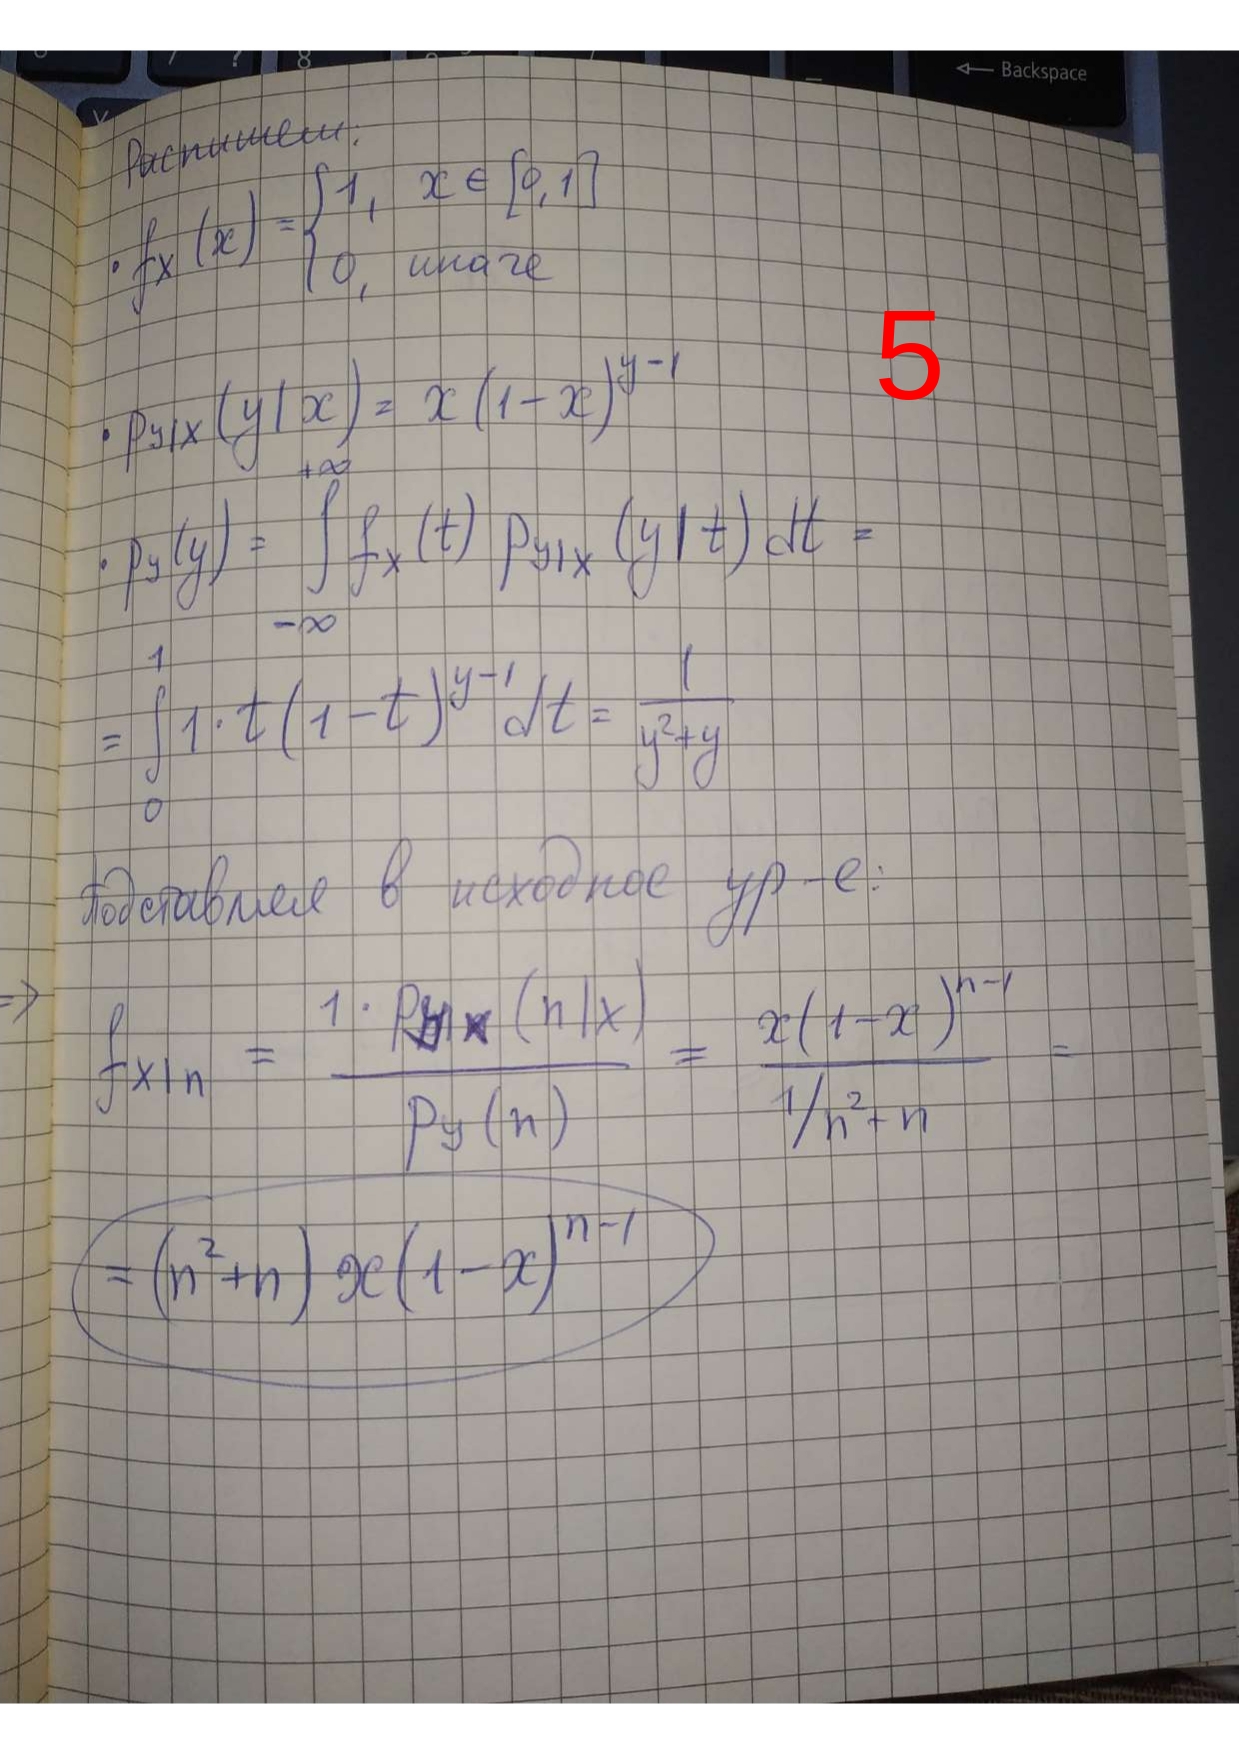 ← Backspace
Распишем:
• f_X(x) = { 1, x ∈ [0,1]
0, иначе
5
• p_{Y|X}(y|x) = x(1-x)^{y-1}
• p_Y(y) = ∫_{-∞}^{+∞} f_X(t) p_{Y|X}(y|t) dt =
= ∫_0^1 1·t(1-t)^{y-1} dt = 1/(y²+y)
Подставляем в исходное ур-е:
=>
f_{X|n} = (1·p_{Y|X}(n|x))/(p_Y(n)) = (x(1-x)^{n-1})/(1/n²+n) =
= (n²+n) x(1-x)^{n-1}